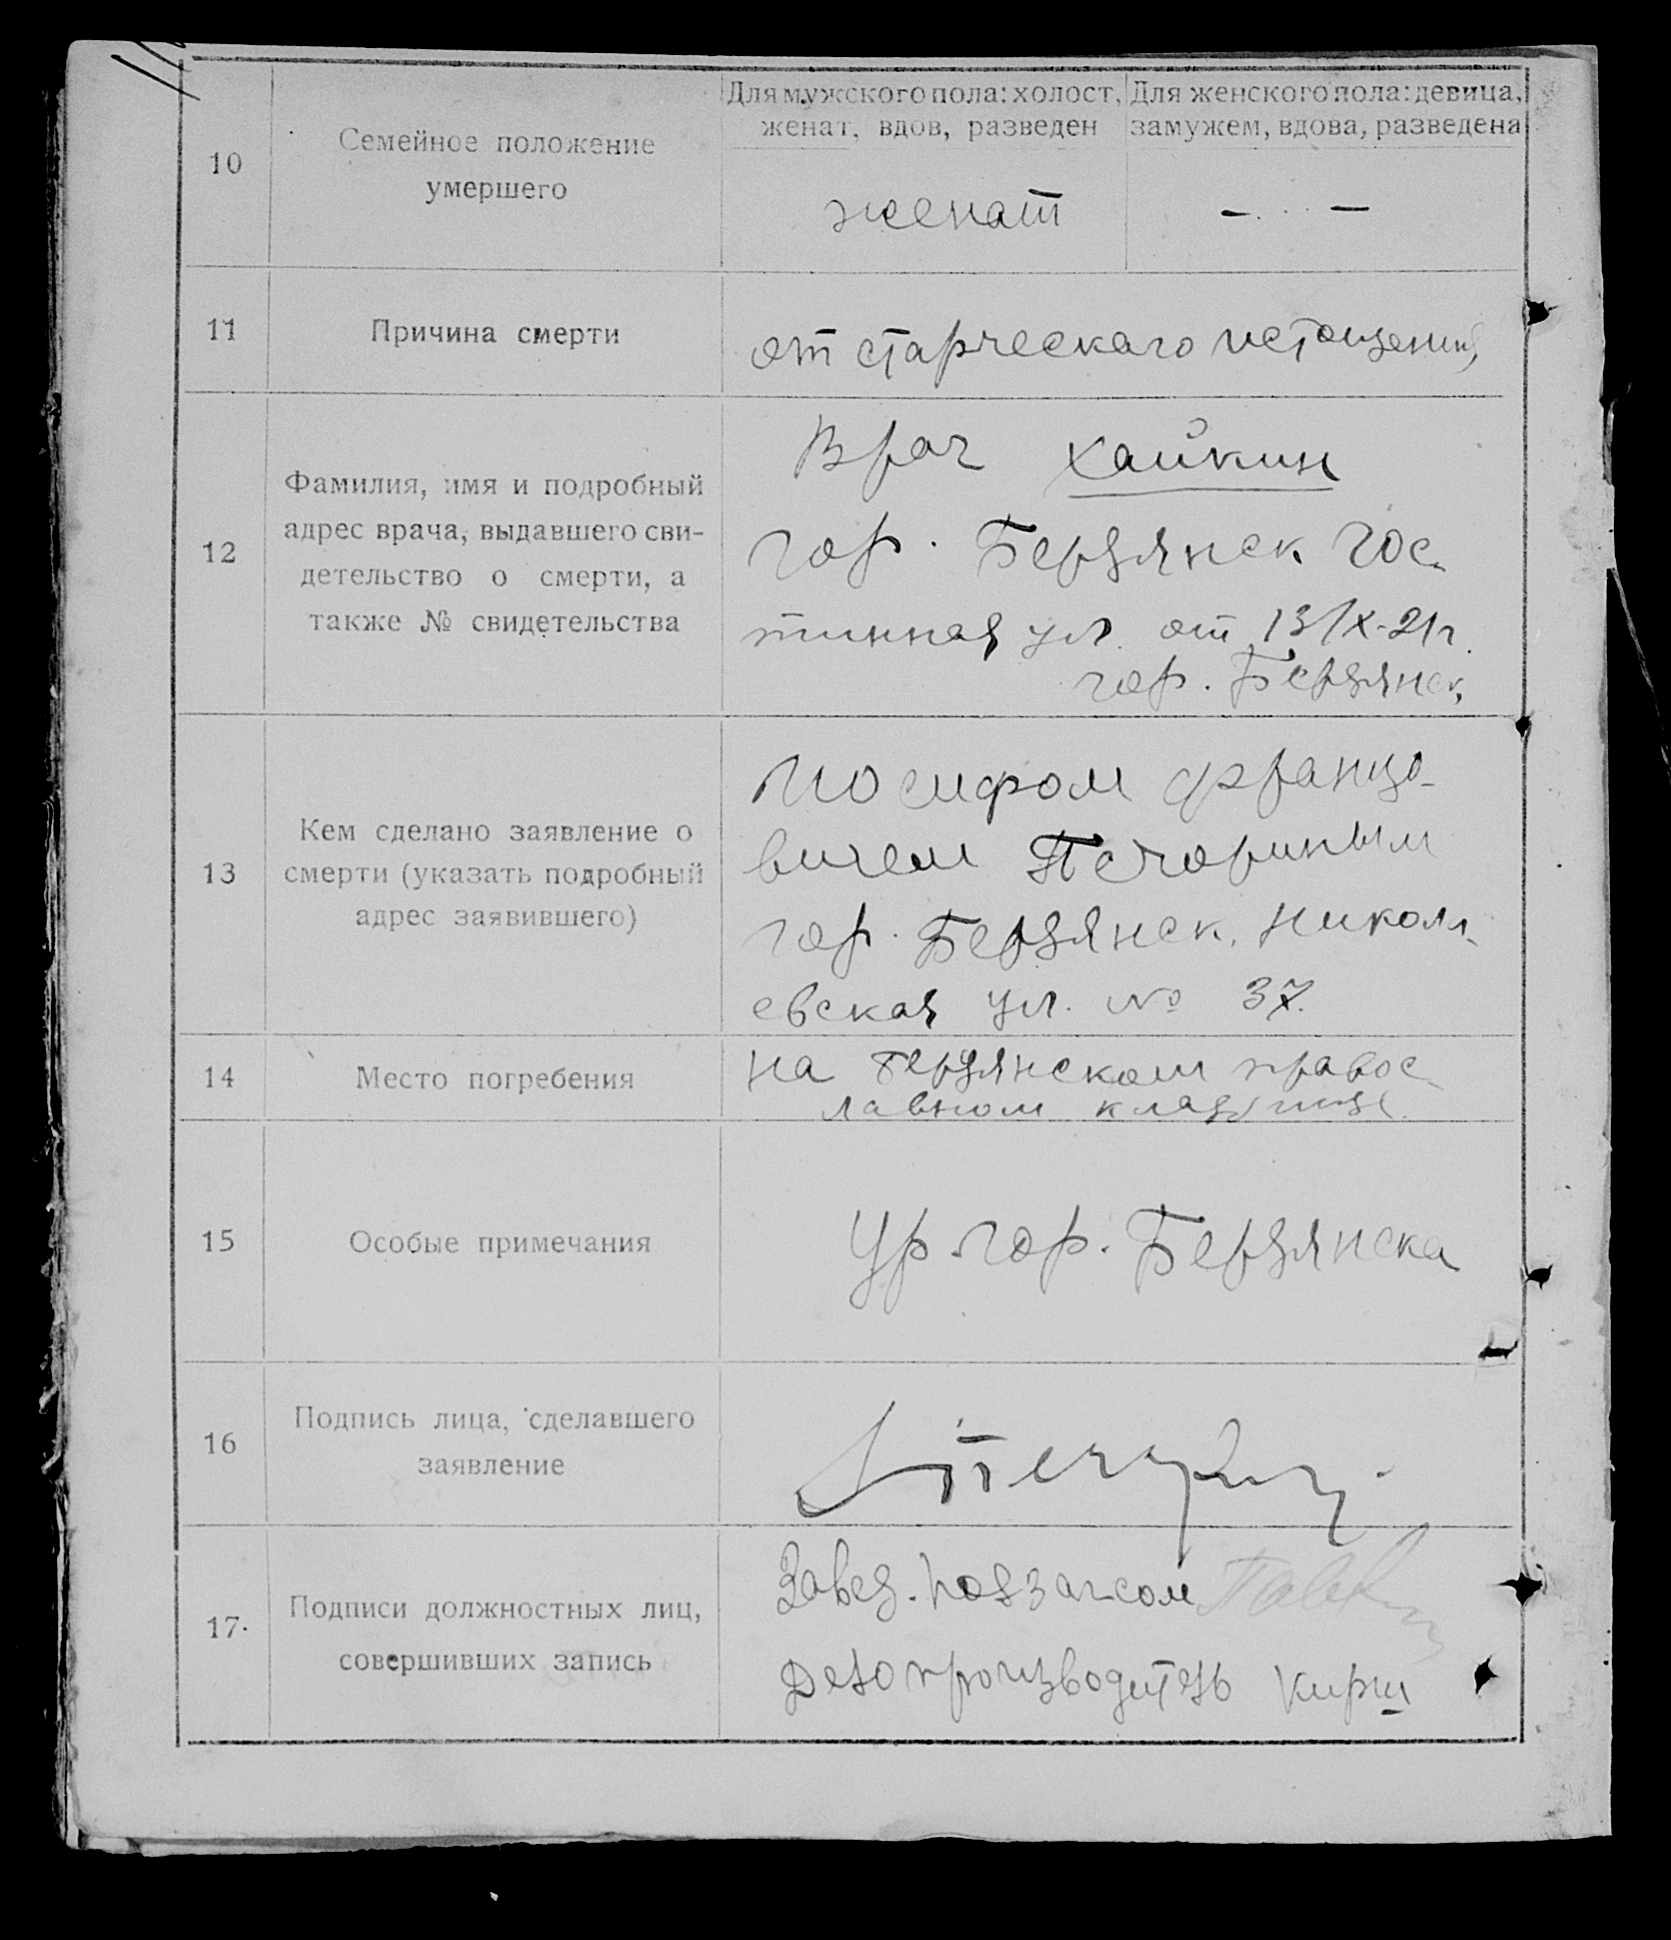 Для мужского пола: холост,
женат, вдов, разведен
Для женского пола: девица,
замужем, вдова, разведена
10
Семейное положение
умершего
женат
— —
11
Причина смерти
от старческаго истощения
12
Фамилия, имя и подробный
адрес врача, выдавшего сви-
детельство о смерти, а
также № свидетельства
Врач Хайкин
гор. Бердянск Гос-
тинная ул. от 13/X-21 г.
гор. Бердянск
13
Кем сделано заявление о
смерти (указать подробный
адрес заявившего)
Иосифом Францо-
вичем Печориным
гор. Бердянск. Никола-
евская ул. № 37.
14
Место погребения
на бердянском правос-
лавном кладбище
15
Особые примечания
Ур. гор. Бердянска
16
Подпись лица, сделавшего
заявление
17.
Подписи должностных лиц,
совершивших запись
Завед. подзагсом
Делопроизводитель Кирш